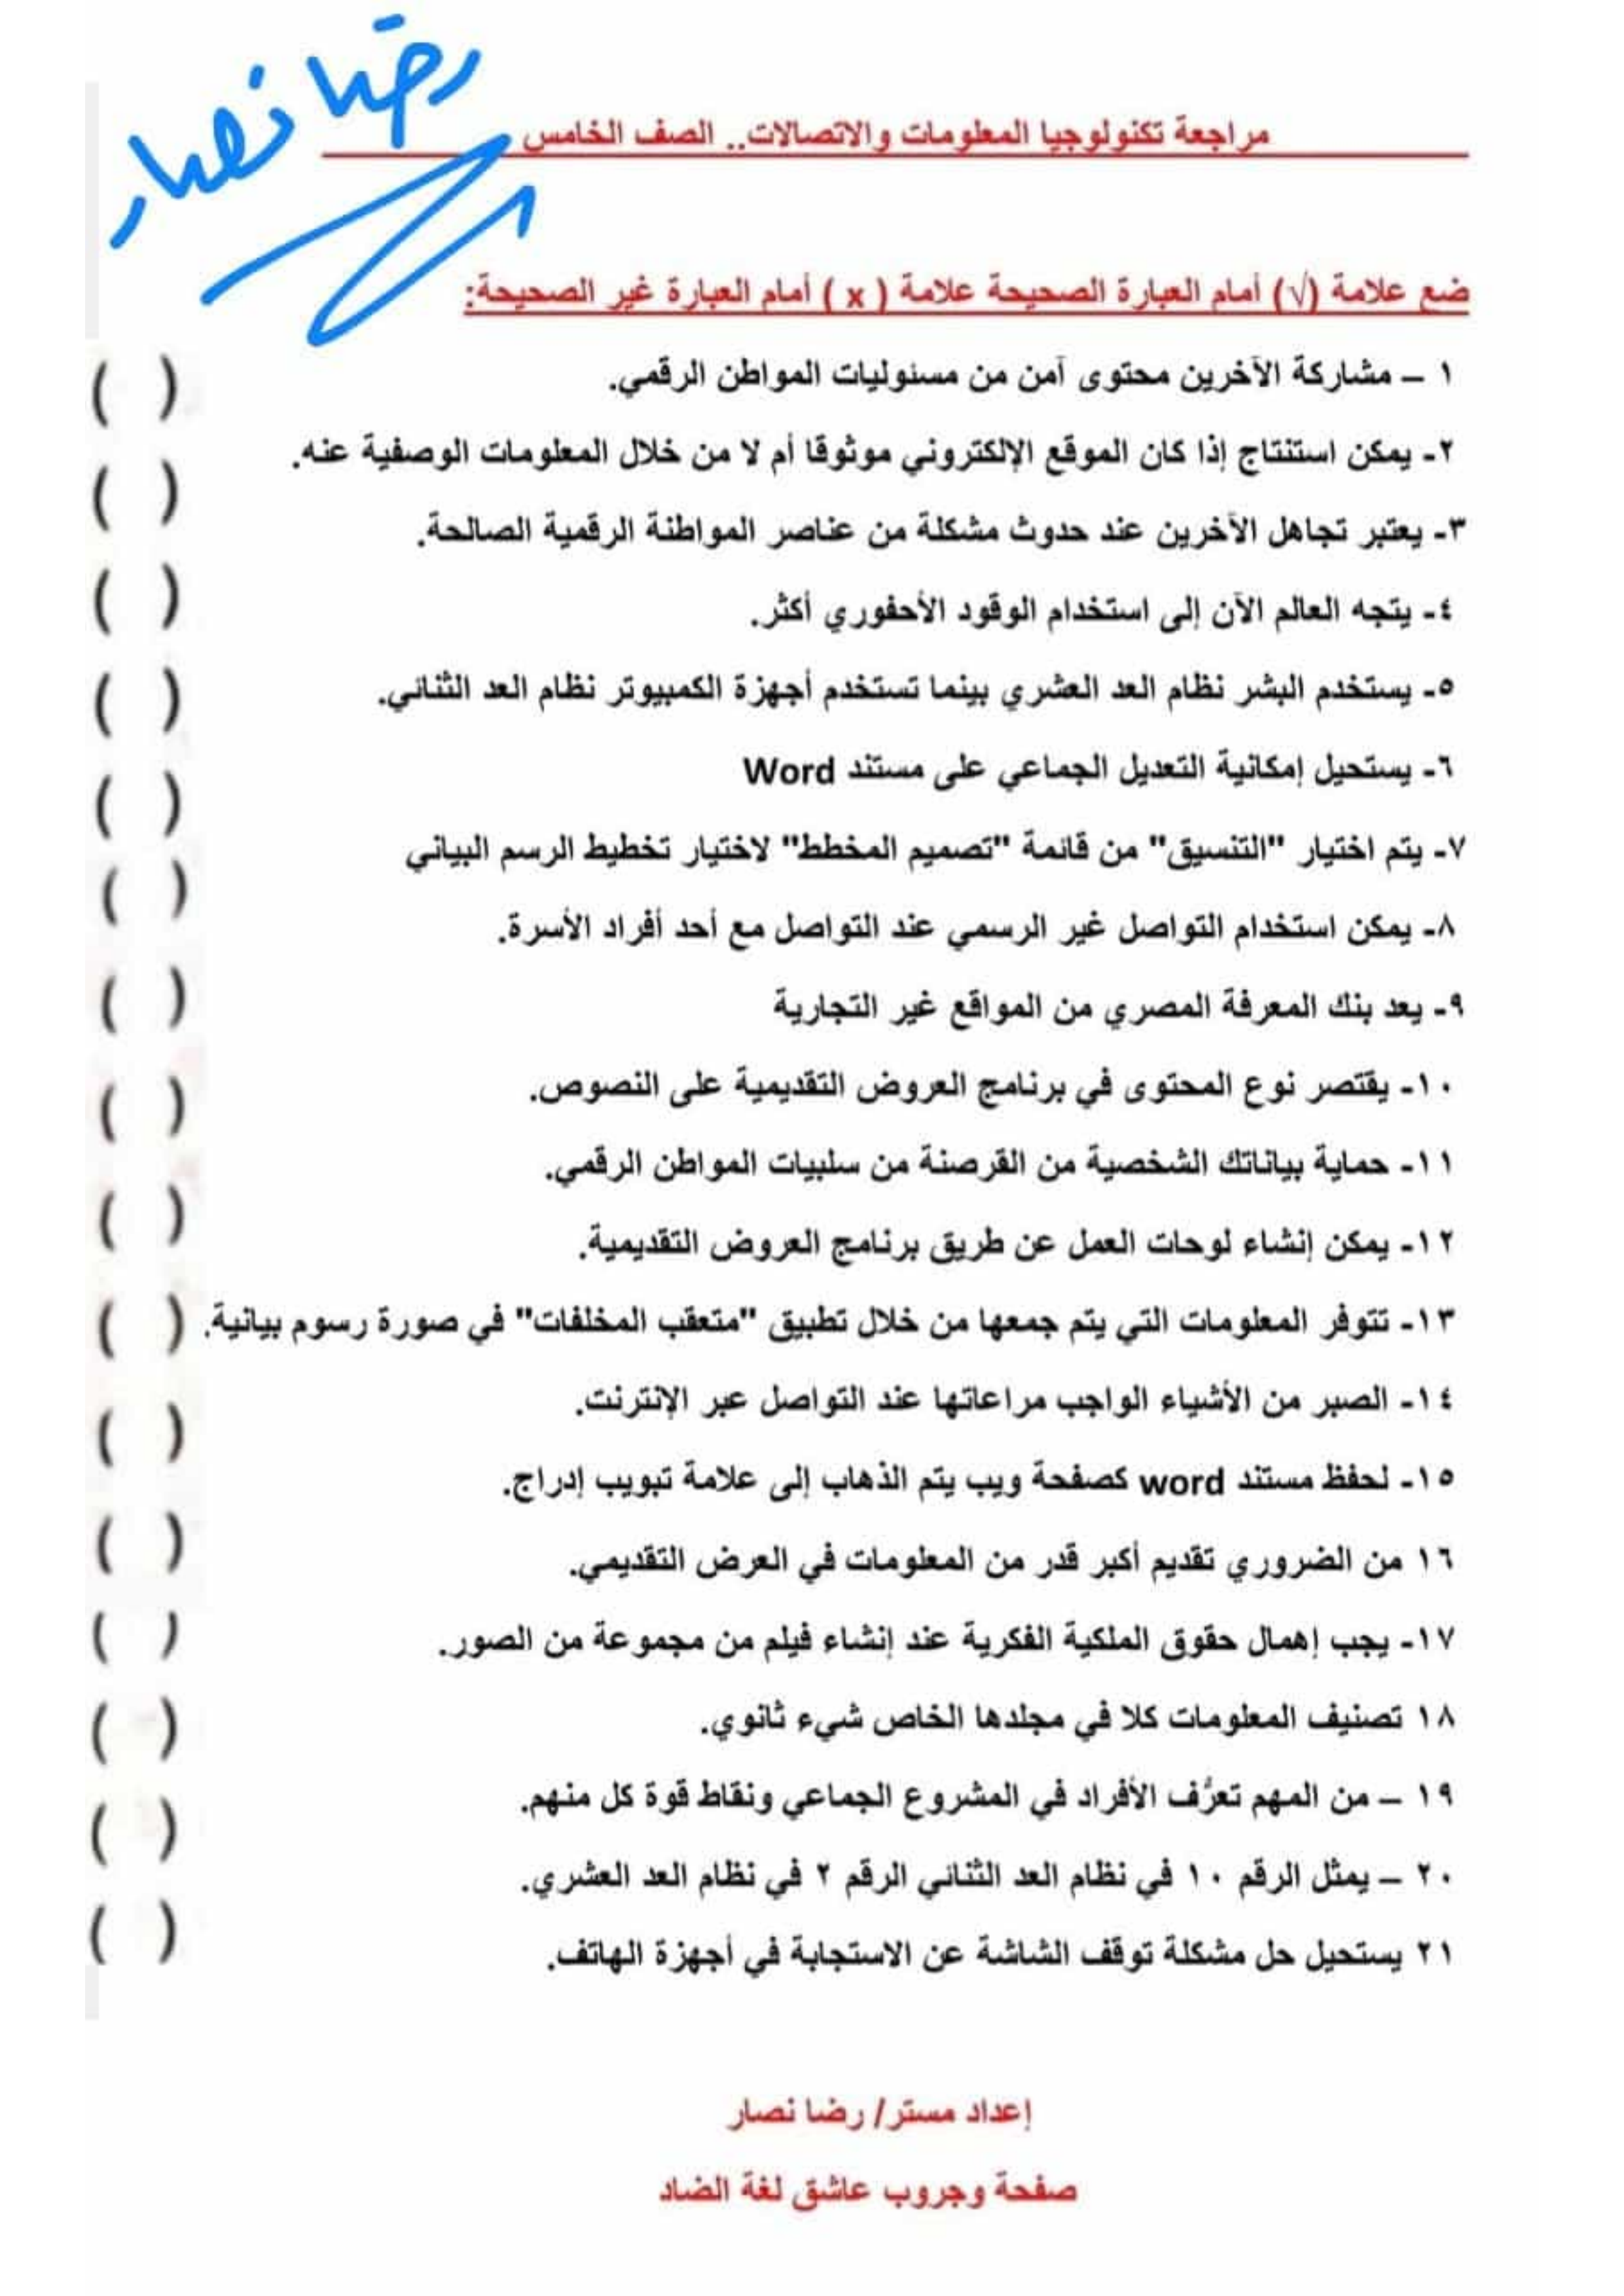 رضا نصار
مراجعة تكنولوجيا المعلومات والاتصالات.. الصف الخامس
ضع علامة (√) أمام العبارة الصحيحة علامة ( x ) أمام العبارة غير الصحيحة:
١ – مشاركة الآخرين محتوى آمن من مسئوليات المواطن الرقمي. ( )
٢- يمكن استنتاج إذا كان الموقع الإلكتروني موثوقا أم لا من خلال المعلومات الوصفية عنه. ( )
٣- يعتبر تجاهل الآخرين عند حدوث مشكلة من عناصر المواطنة الرقمية الصالحة. ( )
٤- يتجه العالم الآن إلى استخدام الوقود الأحفوري أكثر. ( )
٥- يستخدم البشر نظام العد العشري بينما تستخدم أجهزة الكمبيوتر نظام العد الثنائي. ( )
٦- يستحيل إمكانية التعديل الجماعي على مستند Word ( )
٧- يتم اختيار "التنسيق" من قائمة "تصميم المخطط" لاختيار تخطيط الرسم البياني ( )
٨- يمكن استخدام التواصل غير الرسمي عند التواصل مع أحد أفراد الأسرة. ( )
٩- يعد بنك المعرفة المصري من المواقع غير التجارية ( )
١٠- يقتصر نوع المحتوى في برنامج العروض التقديمية على النصوص. ( )
١١- حماية بياناتك الشخصية من القرصنة من سلبيات المواطن الرقمي. ( )
١٢- يمكن إنشاء لوحات العمل عن طريق برنامج العروض التقديمية. ( )
١٣- تتوفر المعلومات التي يتم جمعها من خلال تطبيق "متعقب المخلفات" في صورة رسوم بيانية. ( )
١٤- الصبر من الأشياء الواجب مراعاتها عند التواصل عبر الإنترنت. ( )
١٥- لحفظ مستند word كصفحة ويب يتم الذهاب إلى علامة تبويب إدراج. ( )
١٦ من الضروري تقديم أكبر قدر من المعلومات في العرض التقديمي. ( )
١٧- يجب إهمال حقوق الملكية الفكرية عند إنشاء فيلم من مجموعة من الصور.
١٨ تصنيف المعلومات كلا في مجلدها الخاص شيء ثانوي.
١٩ – من المهم تعرُّف الأفراد في المشروع الجماعي ونقاط قوة كل منهم.
٢٠ – يمثل الرقم ١٠ في نظام العد الثنائي الرقم ٢ في نظام العد العشري.
٢١ يستحيل حل مشكلة توقف الشاشة عن الاستجابة في أجهزة الهاتف.
إعداد مستر/ رضا نصار
صفحة وجروب عاشق لغة الضاد